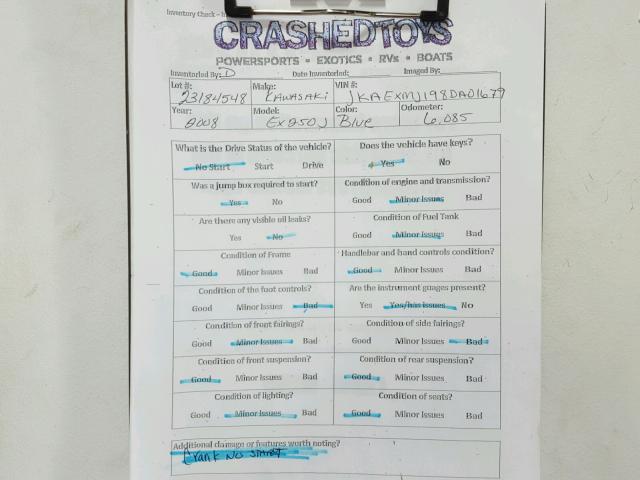 Inventory Check -
CRASHEDTOYS
POWERSPORTS • EXOTICS • RVs • BOATS
Inventoried By: D Date Inventoried: Imaged By:
Lot #: Make: VIN #:
23184548 KAWASAKI JKAEXMJ198DA01679
Year: Model: Color: Odometer:
2008 EX250J Blue 6,085
What is the Drive Status of the vehicle? Does the vehicle have keys?
No Start Start Drive Yes No
Was a jump box required to start? Condition of engine and transmission?
Yes No Good Minor Issues Bad
Are there any visible oil leaks? Condition of Fuel Tank
Yes No Good Minor Issues Bad
Condition of Frame Handlebar and hand controls condition?
Good Minor Issues Bad Good Minor Issues Bad
Condition of the foot controls? Are the instrument guages present?
Good Minor Issues Bad Yes Yes/has issues No
Condition of front fairings? Condition of side fairings?
Good Minor Issues Bad Good Minor Issues Bad
Condition of front suspension? Condition of rear suspension?
Good Minor Issues Bad Good Minor Issues Bad
Condition of lighting? Condition of seats?
Good Minor Issues Bad Good Minor Issues Bad
Additional damage or features worth noting?
Crank NO START